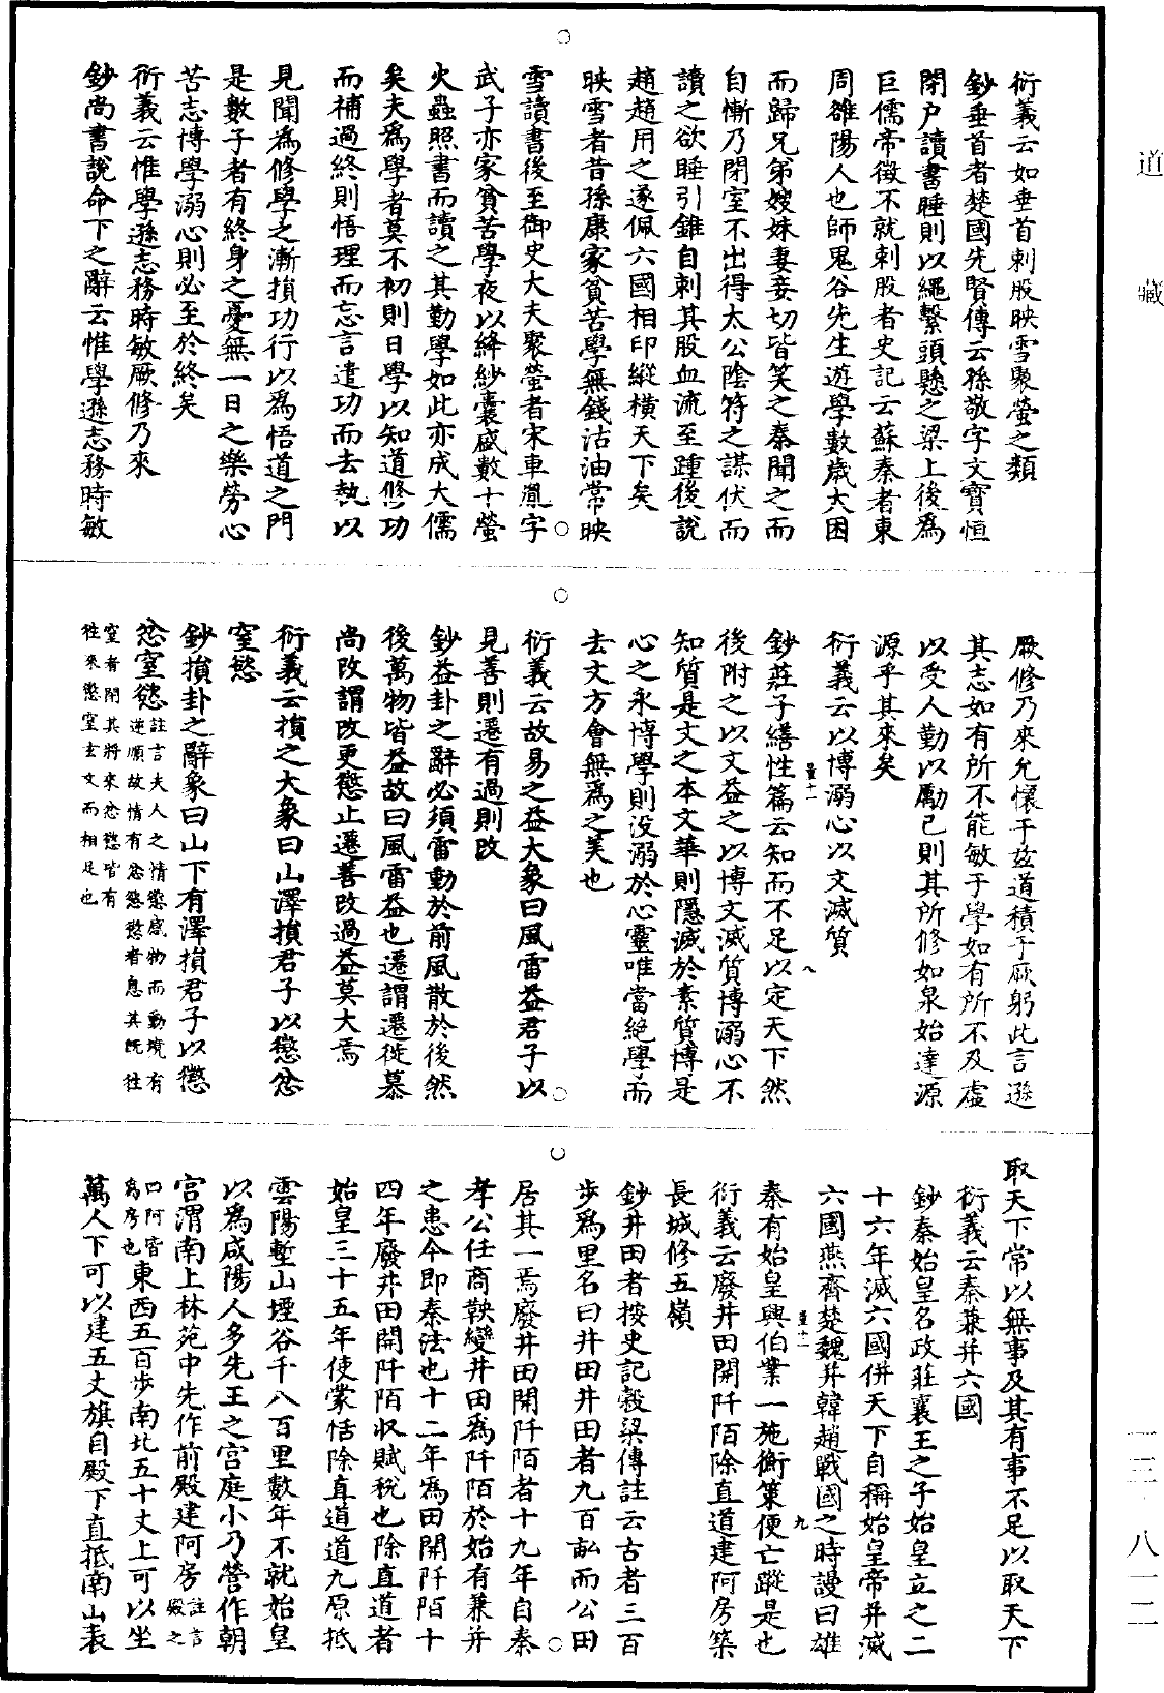 道藏
一三・八一二
衍義云如垂首刺股映雪聚螢之類
鈔垂首者楚國先賢傳云孫敬字文寶恒
閉户讀書睡則以繩繫頭懸之梁上後爲
巨儒帝徵不就刺股者史記云蘇秦者東
周雒陽人也師鬼谷先生遊學數歲大困
而歸兄弟嫂妹妻妾切皆笑之秦聞之而
自慚乃閉室不出得太公陰符之謀伏而
讀之欲睡引錐自刺其股血流至踵後說
趙趙用之遂佩六國相印縱横天下矣
映雪者昔孫康家貧苦學無錢沽油常映
雪讀書後至御史大夫聚螢者宋車胤字
武子亦家貧苦學夜以絳紗囊盛數十螢
火蟲照書而讀之其勤學如此亦成大儒
矣夫爲學者莫不初則日學以知道修功
而補過終則悟理而忘言遣功而去執以
見聞爲修學之漸損功行以爲悟道之門
是數子者有終身之憂無一日之樂勞心
苦志博學溺心則必至於終矣
衍義云惟學遜志務時敏厥修乃來
鈔尚書說命下之辭云惟學遜志務時敏
厥修乃來允懷于兹道積于厥躬此言遜
其志如有所不能敏于學如有所不及虛
以受人勤以勵己則其所修如泉始達源
源乎其來矣
衍義云以博溺心以文滅質
鈔莊子繕性篇云知而不足以定天下然
後附之以文益之以博文滅質博溺心不
知質是文之本文華則隱滅於素質博是
心之末博學則没溺於心靈唯當絕學而
去文方會無爲之美也
衍義云故易之益大象曰風雷益君子以
見善則遷有過則改
鈔益卦之辭必須雷動於前風散於後然
後萬物皆益故曰風雷益也遷謂遷徙慕
尚改謂改更懲止遷善改過益莫大焉
衍義云損之大象曰山澤損君子以懲忿
窒慾
鈔損卦之辭象曰山下有澤損君子以懲
忿窒慾註言夫人之情慾感物而動境有
逆順故情有忿慾懲者息其既往
窒者閉其將來忿慾皆有
往來懲窒玄文而相足也
取天下常以無事及其有事不足以取天下
衍義云秦兼并六國
鈔秦始皇名政莊襄王之子始皇立之二
十六年滅六國併天下自稱始皇帝并滅
六國燕齊楚魏并韓趙戰國之時謾曰雄
秦有始皇興伯業一施衡策便亡蹤是也
衍義云廢井田開阡陌除直道建阿房築
長城修五嶺
鈔井田者按史記穀梁傳註云古者三百
步爲里名曰井田井田者九百畝而公田
居其一焉廢井田開阡陌者十九年自秦
孝公任商鞅變井田爲阡陌於始有兼并
之患今即秦法也十二年爲田開阡陌十
四年廢井田開阡陌收賦稅也除直道者
始皇三十五年使蒙恬除直道道九原抵
雲陽塹山堙谷千八百里數年不就始皇
以爲咸陽人多先王之宫庭小乃營作朝
宫渭南上林苑中先作前殿建阿房註言殿之
曰阿皆爲房也東西五百步南北五十丈上可以坐
萬人下可以建五丈旗自殿下直抵南山表